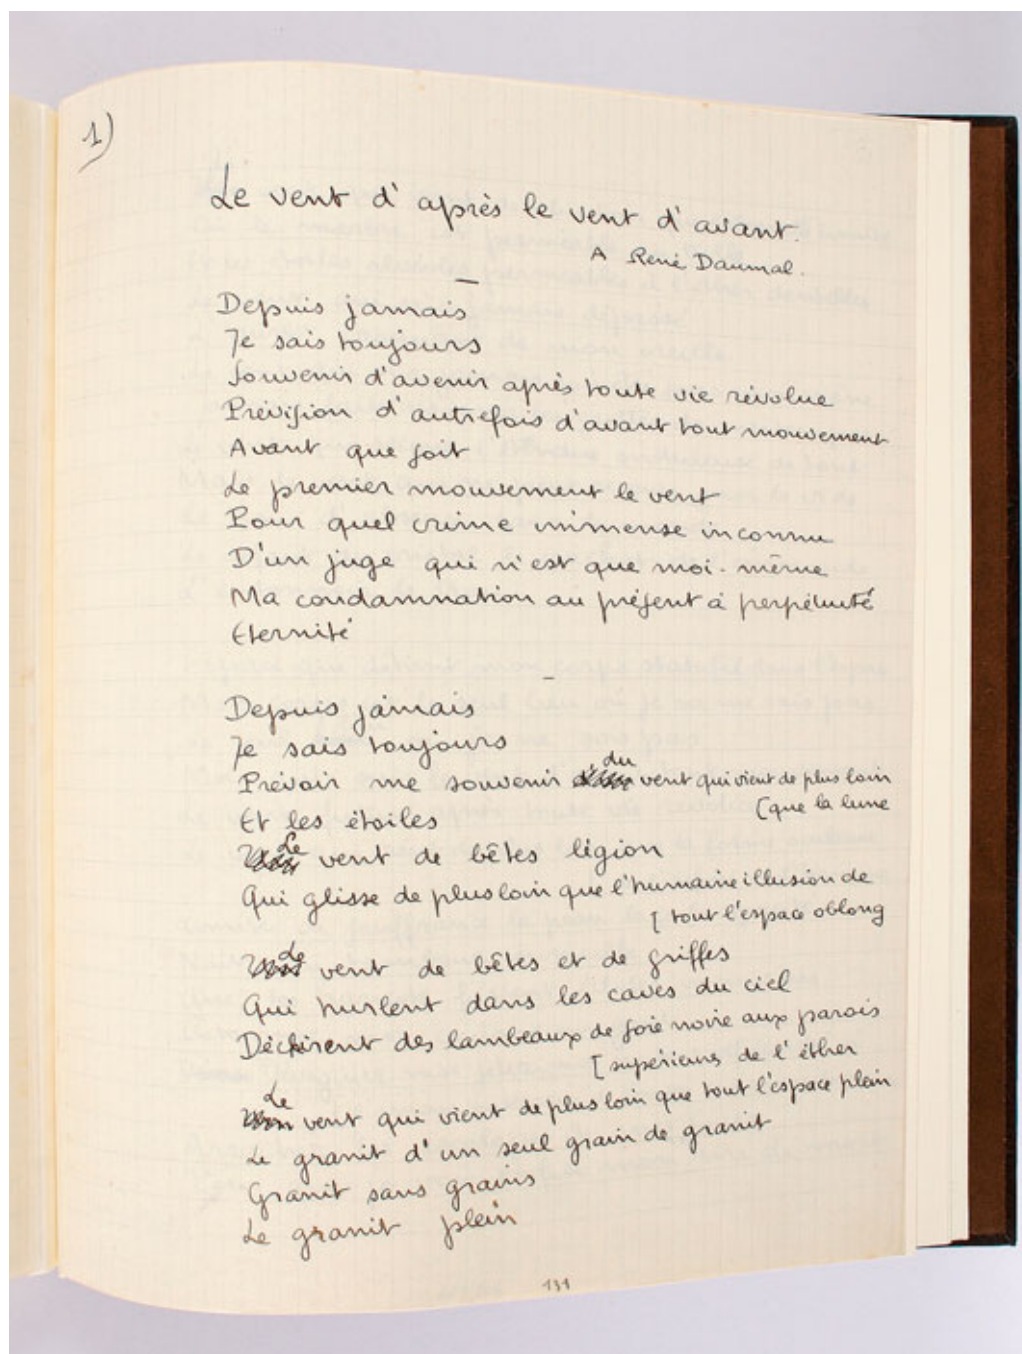 1)
Le vent d'après le vent d'avant.
A René Daumal.
—
Depuis jamais
Je sais toujours
Souvenir d'avenir après toute vie révolue
Prévision d'autrefois d'avant tout mouvement
Avant que soit
Le premier mouvement le vent
Pour quel crime immense inconnu
D'un juge qui n'est que moi-même
Ma condamnation au présent à perpétuité
Eternité
—
Depuis jamais
Je sais toujours
Prévoir me souvenir du vent qui vient de plus loin
[que la lune
Et les étoiles
Le vent de bêtes légion
Qui glisse de plus loin que l'humaine illusion de
[tout l'espace oblong
Le vent de bêtes et de griffes
Qui hurlent dans les caves du ciel
Déchirent des lambeaux de soie noire aux parois
[supérieures de l'éther
Le vent qui vient de plus loin que tout l'espace plein
Le granit d'un seul grain de granit
Granit sans grains
Le granit plein
131